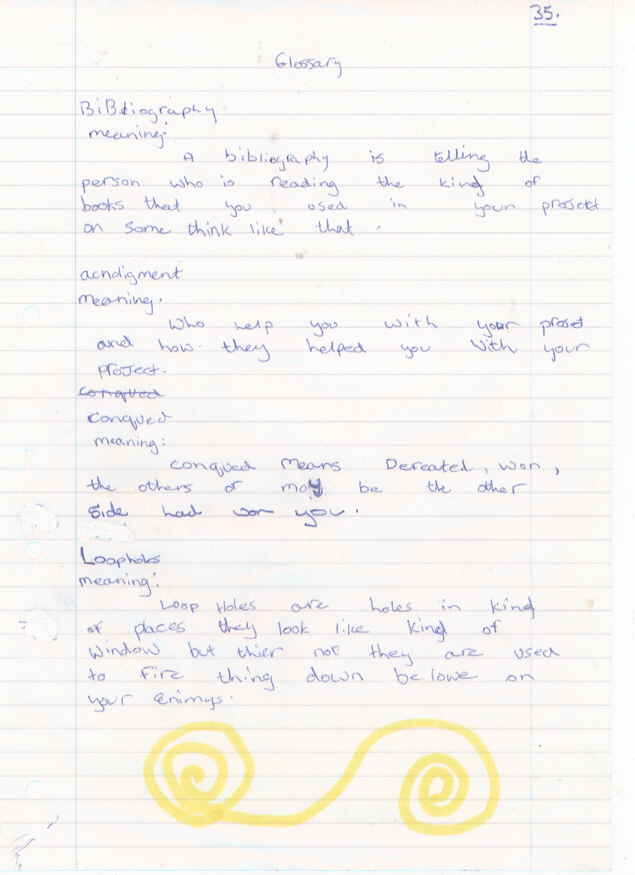 35.
Glossary
BiBliography
meaning:
A bibliography is telling the
person who is reading the kind of
books that you used in your project
on some think like that.
acndigment
meaning.
Who help you with your proset
and how they helped you with your
project.
conqued
conqued
meaning:
conqued means Dereated, won,
the others or may be the other
side had won you.
Loopholes
meaning:
Loop Holes are holes in kind
of places they look like kind of
window but thier not they are used
to fire thing down belowe on
your enimys.